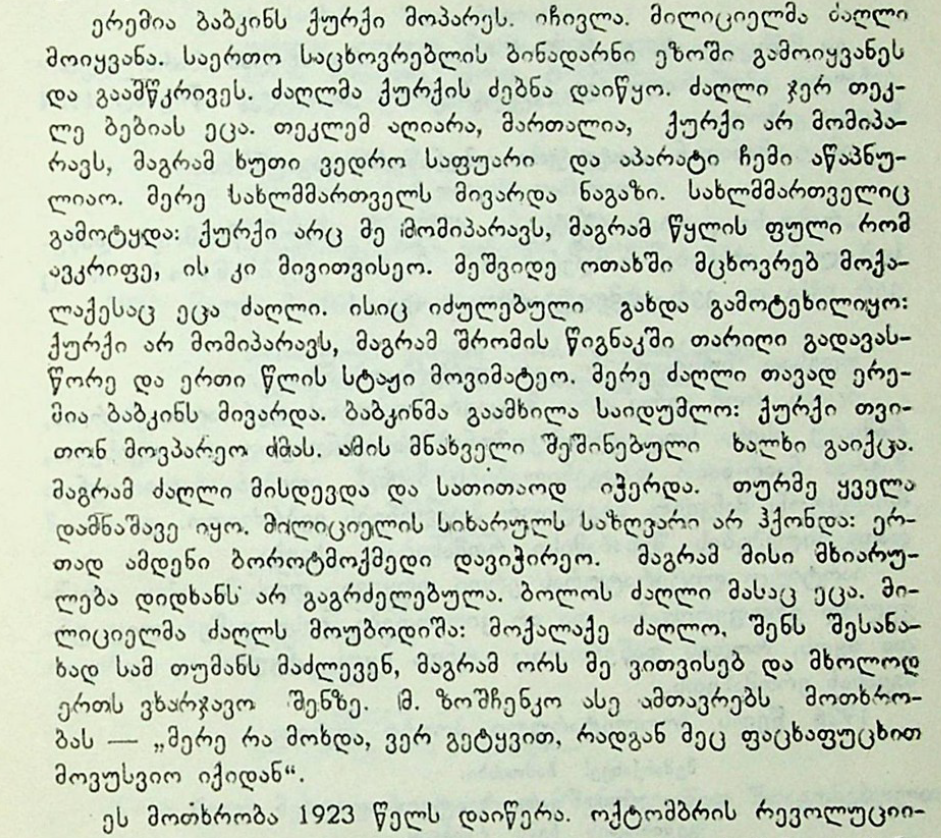 ერემია ბაბკინს ქურქი მოპარეს. იჩივლა. მილიციელმა ძაღლი
მოიყვანა. საერთო საცხოვრებლის ბინადარნი ეზოში გამოიყვანეს
და გაამწკრივეს. ძაღლმა ქურქის ძებნა დაიწყო. ძაღლი ჯერ თეკ-
ლე ბებიას ეცა. თეკლემ აღიარა, მართალია, ქურქი არ მომიპა-
რავს, მაგრამ ხუთი ვედრო საფუარი და აპარატი ჩემი აწაპნუ-
ლიაო. მერე სახლმმართველს მივარდა ნაგაზი. სახლმმართველიც
გამოტყდა: ქურქი არც მე მომიპარავს, მაგრამ წყლის ფული რომ
ავკრიფე, ის კი მივითვისეო. მეშვიდე ოთახში მცხოვრებ მოქა-
ლაქესაც ეცა ძაღლი. ისიც იძულებული გახდა გამოტეხილიყო:
ქურქი არ მომიპარავს, მაგრამ შრომის წიგნაკში თარიღი გადავას-
წორე და ერთი წლის სტაჟი მოვიმატეო. მერე ძაღლი თავად ერე-
მია ბაბკინს მივარდა. ბაბკინმა გაამხილა საიდუმლო: ქურქი თვი-
თონ მოვპარეო ძმას. ამის მნახველი შეშინებული ხალხი გაიქცა.
მაგრამ ძაღლი მისდევდა და სათითაოდ იჭერდა. თურმე ყველა
დამნაშავე იყო. მილიციელის სიხარულს საზღვარი არ ჰქონდა: ერ-
თად ამდენი ბოროტმოქმედი დავიჭირეო. მაგრამ მისი მხიარუ-
ლება დიდხანს არ გაგრძელებულა. ბოლოს ძაღლი მასაც ეცა. მი-
ლიციელმა ძაღლს მოუბოდიშა: მოქალაქე ძაღლო, შენს შესანა-
ხად სამ თუმანს მაძლევენ, მაგრამ ორს მე ვითვისებ და მხოლოდ
ერთს ვხარჯავო შენზე. მ. ზოშჩენკო ასე ამთავრებს მოთხრო-
ბას — „მერე რა მოხდა, ვერ გეტყვით, რადგან მეც ფაცხაფუცხით
მოვუსვიო იქიდან“.
ეს მოთხრობა 1923 წელს დაიწერა. ოქტომბრის რევოლუციი-